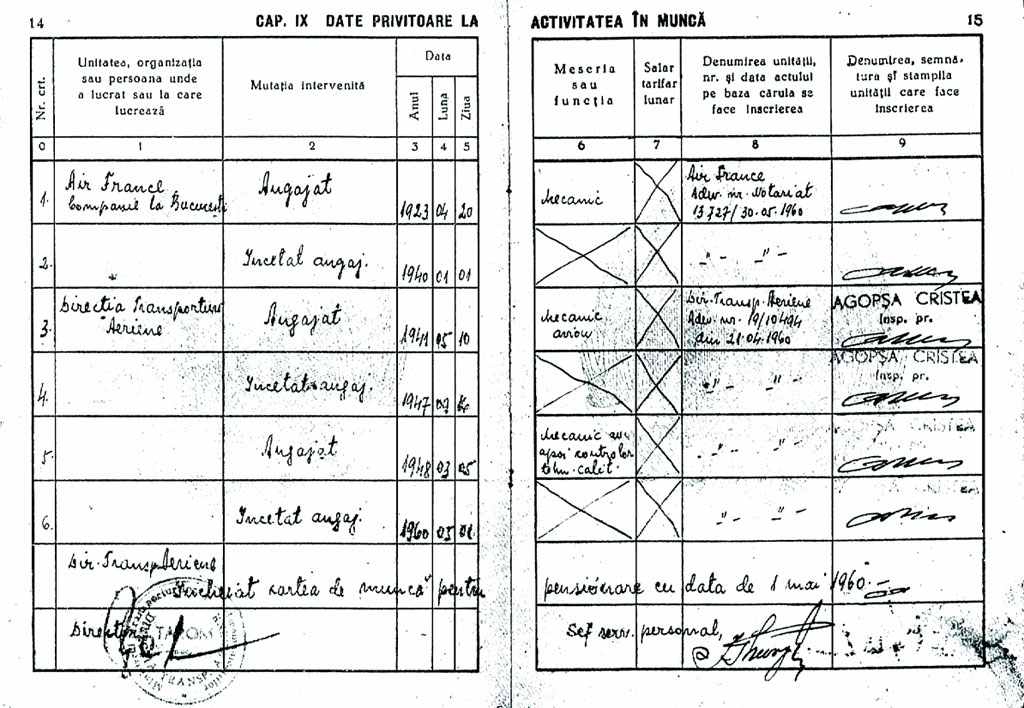 14 CAP. IX DATE PRIVITOARE LA
ACTIVITATEA ÎN MUNCĂ 15
Nr. crt.
Unitatea, organizația
sau persoana unde
a lucrat sau la care
lucrează
Mutația intervenită
Data
Anul
Luna
Ziua
Meseria
sau
funcția
Salar
tarifar
lunar
Denumirea unității,
nr. și data actului
pe baza căruia se
face înscrierea
Denumirea, semnă-
tura și stampila
unității care face
înscrierea
0 1 2 3 4 5 6 7 8 9
1.
Air France
Companie la București
Angajat
1923 04 20
Mecanic
Air France
Adev. nr. Notariat
13727/30.05.1960
2.
-"-
Incetat angaj.
1940 01 01
-"- -"-
3.
Directia Transporturi
Aeriene
Angajat
1941 05 10
Mecanic
avion
Dir. Transp. Aeriene
Adev. nr. 19/10494
din 21.04.1960
AGOPȘA CRISTEA
Insp. pr.
4.
Incetat angaj.
1947 09
-"- -"-
AGOPȘA CRISTEA
Insp. pr.
5.
Angajat
1948 03 05
Mecanic av.
apoi controlor
tehn. calit.
-"- -"-
AGOPȘA CRISTEA
6.
Incetat angaj.
1960 05 01
-"- -"-
Dir. Transp. Aeriene
Incheiat cartea de muncă pentru
pensionare cu data de 1 mai 1960.
Director
TAROM
TRANSP
Șef serv. personal,